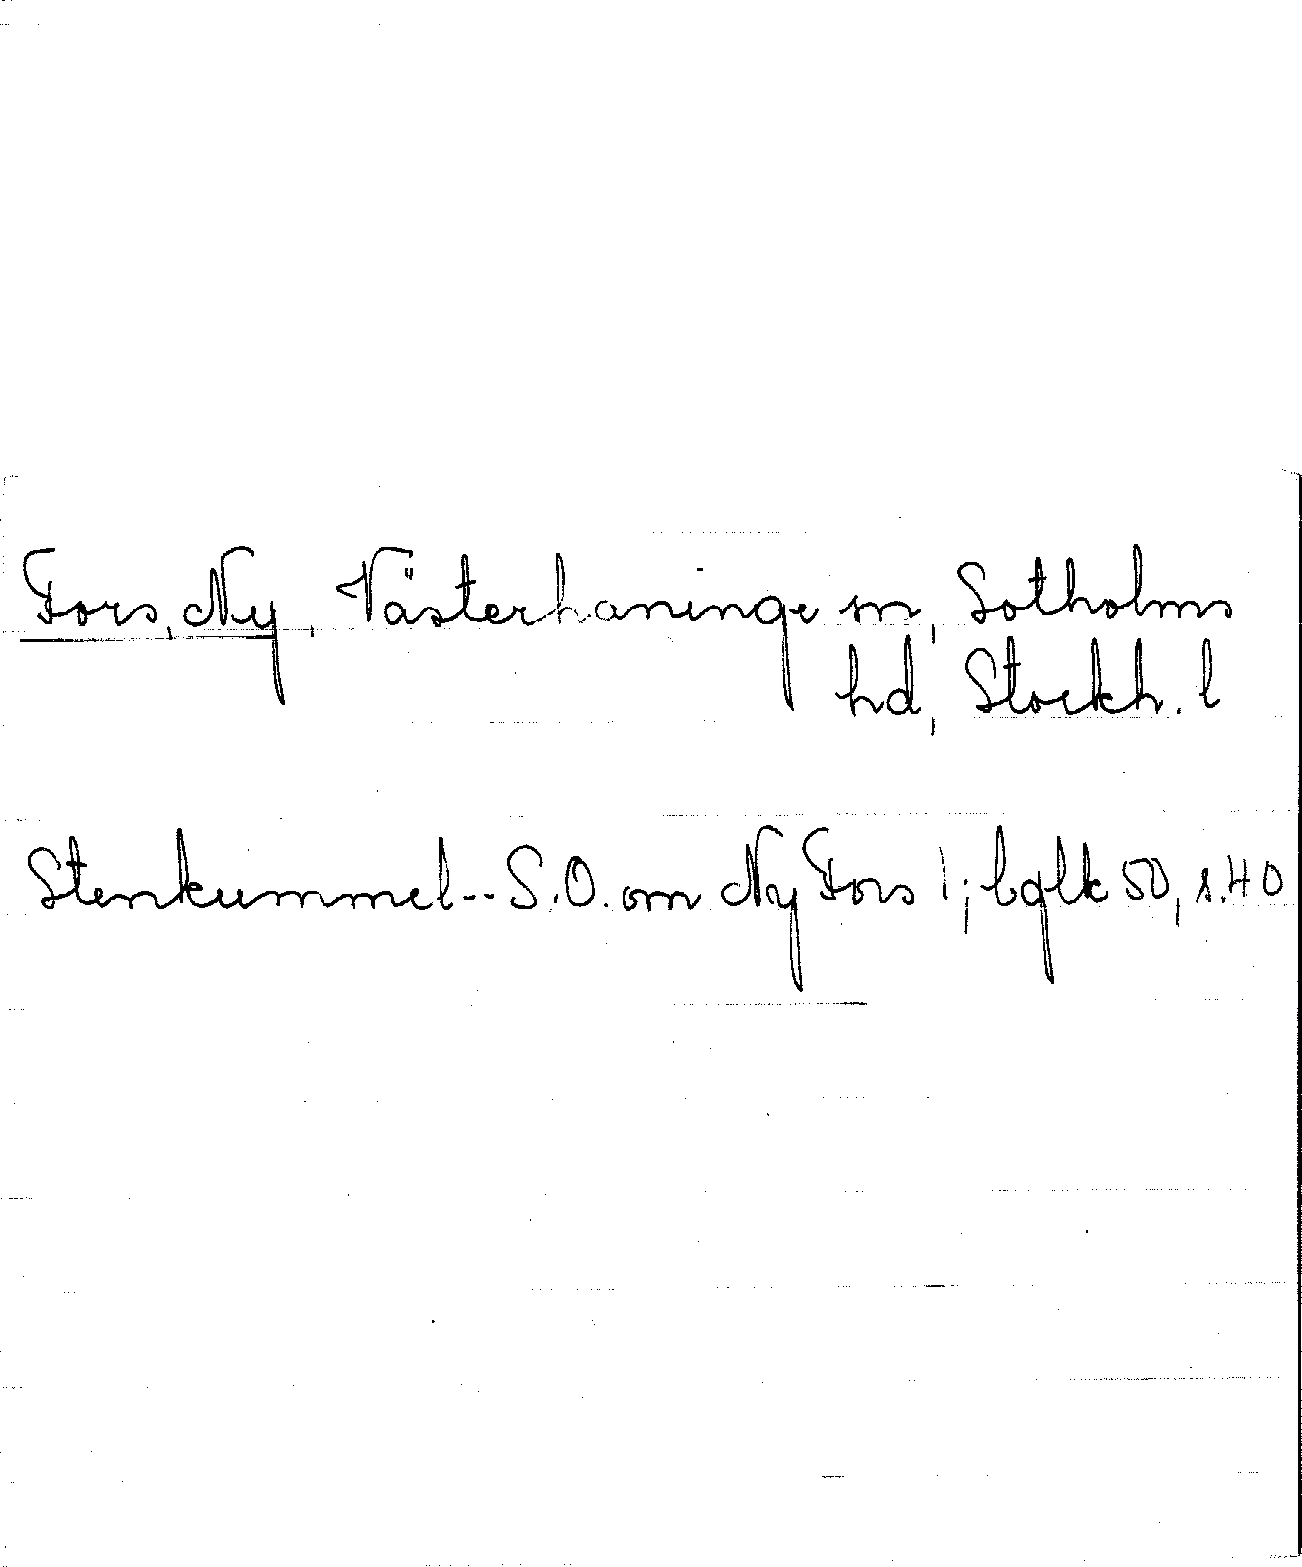 Fors, Ny, Västerhaninge sn, Sotholms
hd, Stockh. l
Stenkummel-- S.O. om Ny Fors l; bglk 50, s. 40